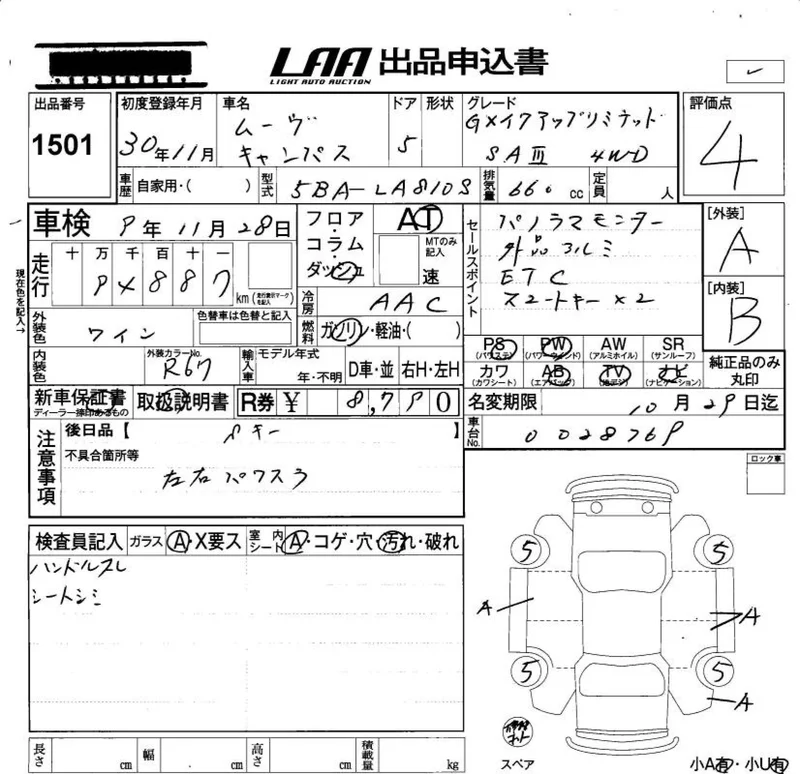 LAA 出品申込書
LIGHT AUTO AUCTION
出品番号
1501
初度登録年月
30年11月
車名
ムーヴ
キャンバス
ドア
5
形状
グレード
Gメイクアップリミテッド
SAⅢ 4WD
評価点
4
車歴 自家用・( )
型式 5BA-LA810S
排気量 660cc
定員 人
車検 9年11月28日
フロア・コラム・ダッシュ
AT
MTのみ記入
速
セールスポイント
パノラマモニター
外品アルミ
ETC
スマートキー×2
[外装]
A
[内装]
B
現在色を記入→
走行
十 万 千 百 十 一
9 × 8 8 7
km (走行表示マークを記入)
冷房 AAC
外装色 ワイン
色替車は色替と記入
燃料 ガソリン・軽油・( )
内装色
外装カラーNo.
R67
輸入車
モデル年式
年・不明
D車・並
右H・左H
PS (パワステ)
PW (パワーウインド)
AW (アルミホイル)
SR (サンルーフ)
カワ (カワシート)
AB (エアバック)
TV (地デジ)
ナビ (ナビゲーション)
純正品のみ丸印
新車保証書
ディーラー捺印あるもの
取扱説明書
R券 ¥ 8,790
名変期限 10月29日迄
車台No. 0028769
注意事項
後日品【 Rキー 】
不具合箇所等
左右パワスラ
ロック車
検査員記入
ガラス A・X要ス
室内シート A・コゲ・穴・汚れ・破れ
ハンドルスレ
シートシミ
5
5
A
A
5
5
A
スペア
長さ cm
幅 cm
高さ cm
積載量 kg
小A有・小U有